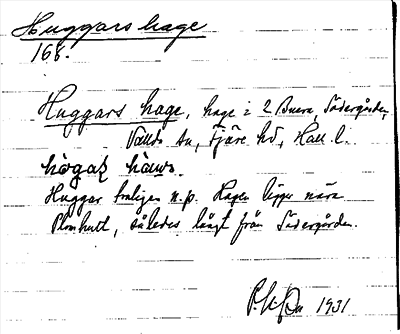 Huggars hage
168.
Huggars hage, hage i 2 Buera, Södergården,
Valld. sn, Fjäre hd, Hall. l.
Huggar troligen n.p. Hagen ligger nära
Plomhult, således långt från Södergården.
1931